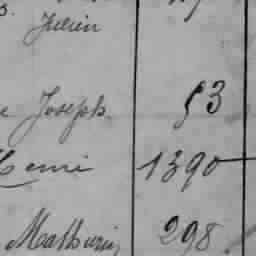 Julien
Joseph 53
Henri 1390
Mathurin 298